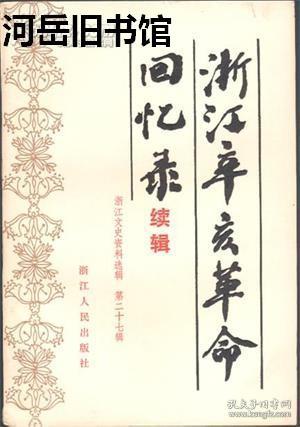 河岳旧书馆
浙江辛亥革命
回忆录
续辑
浙江文史资料选辑 第二十七辑
浙江人民出版社
孔夫子旧书网